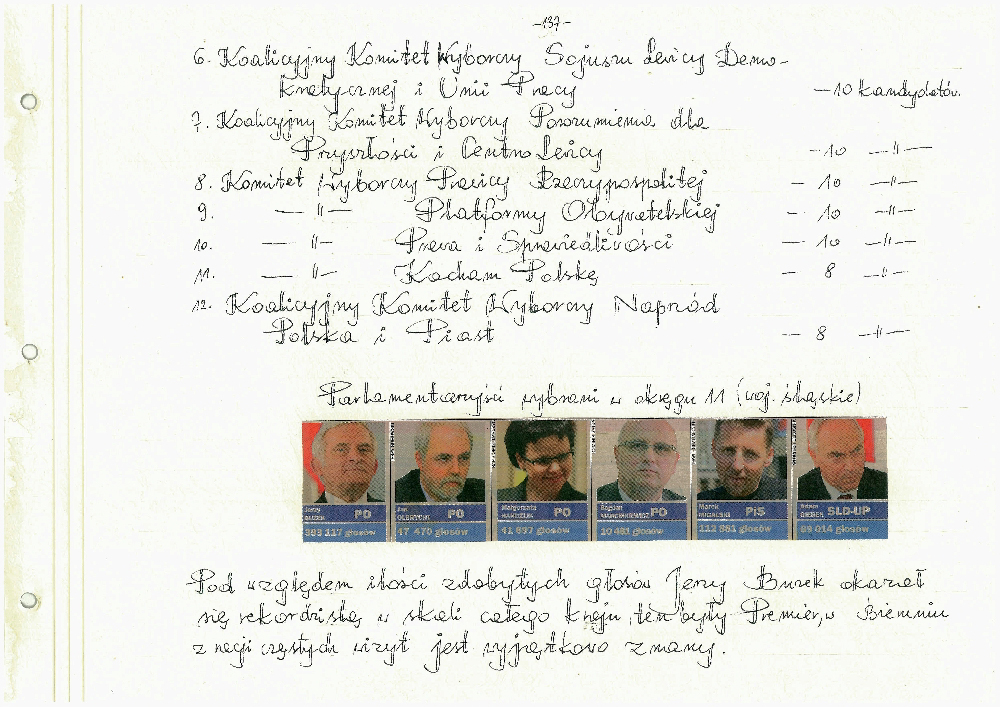 -137-
6. Koalicyjny Komitet Wyborczy Sojuszu Lewicy Demo-
kratycznej i Unii Pracy - 10 kandydatów.
7. Koalicyjny Komitet Wyborczy Porozumienie dla
Przyszłości i CentroLewicy - 10 -"-
8. Komitet Wyborczy Prawicy Rzeczypospolitej - 10 -"-
9. -"- Platformy Obywatelskiej - 10 -"-
10. -"- Prawa i Sprawiedliwości - 10 -"-
11. -"- Kocham Polskę - 8 -"-
12. Koalicyjny Komitet Wyborczy Naprzód
Polska i Piast - 8 -"-
Parlamentaryści wybrani w okręgu 11 (woj. śląskie)
Jerzy BUZEK PO
393 117 głosów
Jan OLBRYCHT PO
47 470 głosów
Małgorzata HANDZLIK PO
41 897 głosów
Bogdan MARCINKIEWICZ PO
10 481 głosów
Marek MIGALSKI PiS
112 881 głosów
Adam GIEREK SLD-UP
69 014 głosów
Pod względem ilości zdobytych głosów Jerzy Buzek okazał
się rekordzistą w skali całego kraju, ten były Premier, w Bieruniu
z racji częstych wizyt jest wyjątkowo znany.